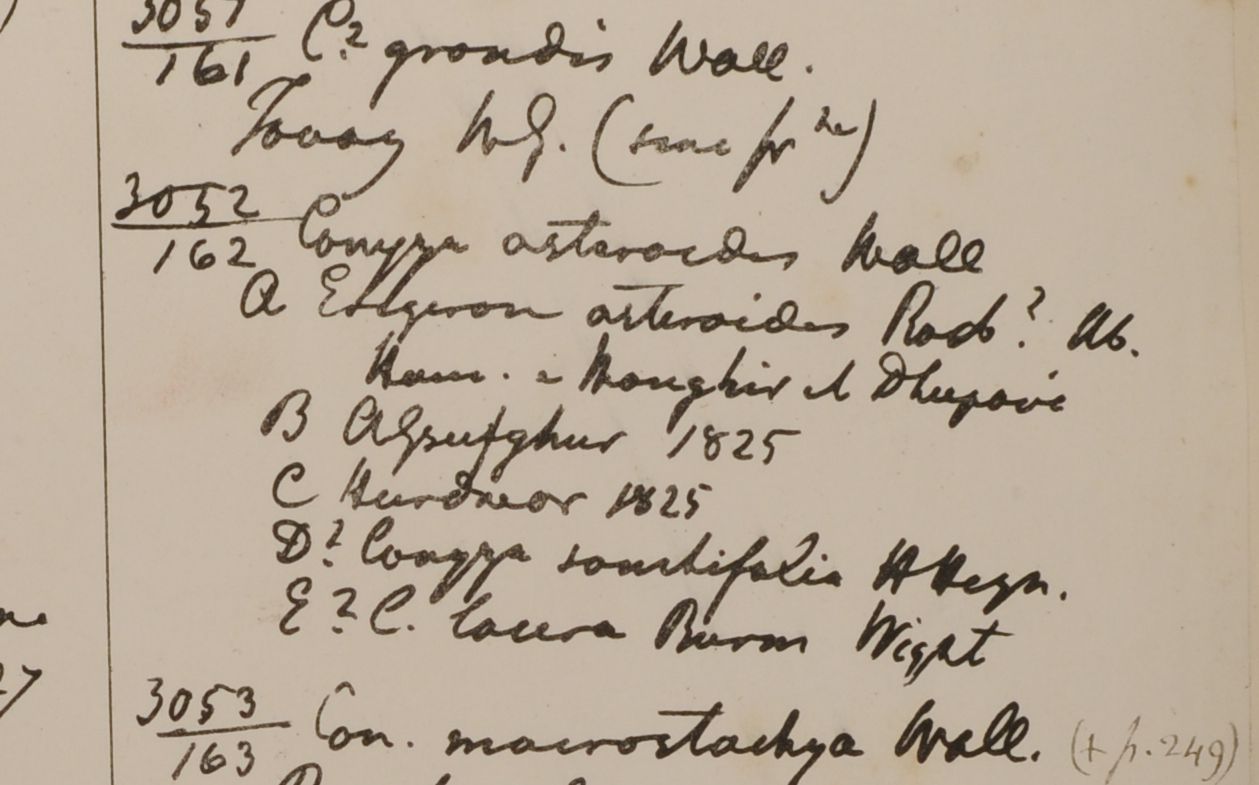 3051
161 C? grandis Wall.
Tavoy W.G. (sine fr
3052
162 Conyza asteroides Wall
A Erigeron asteroides Roxb? Hb.
Ham. e Monghir et Dhupavi
B Azufghur 1825
C Hurdwar 1825
D? Conyza sonchifolia HHeyn.
E? C. lacera Burm Wight
3053
163 Con. macrostachya Wall. (+ p. 249)